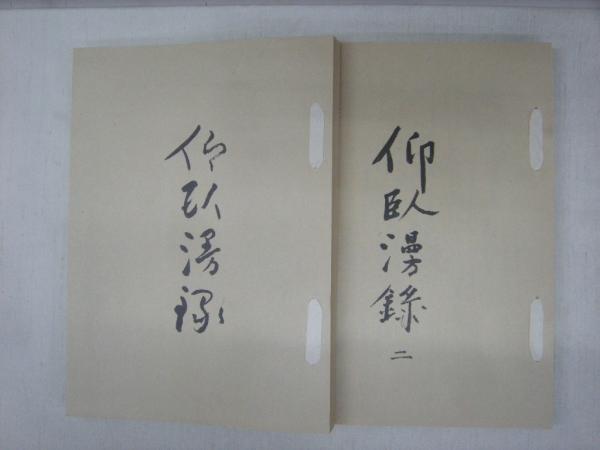 仰臥漫録
仰臥漫錄
二